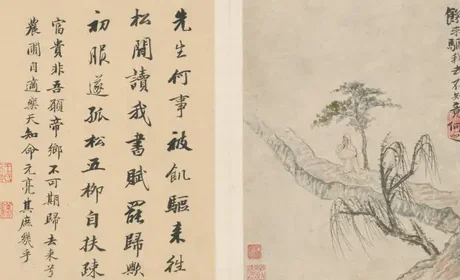 飢來驅我去不知竟何之
先生何事被飢驅來往
松間讀我書賦罷歸歟
初服遂孤松五柳自扶疎
富貴非吾願帝鄉不可期歸去來兮
農圃自適樂天知命元亮其庶幾乎